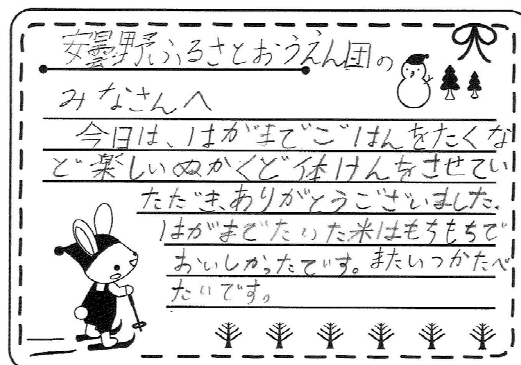 安曇野ふるさとおうえん団の
みなさんへ
今日は、はがまでごはんをたくな
ど楽しいぬかくど体けんをさせてい
ただき、ありがとうございました。
はがまでたいた米はもちもちで
おいしかったです。またいつかたべ
たいです。